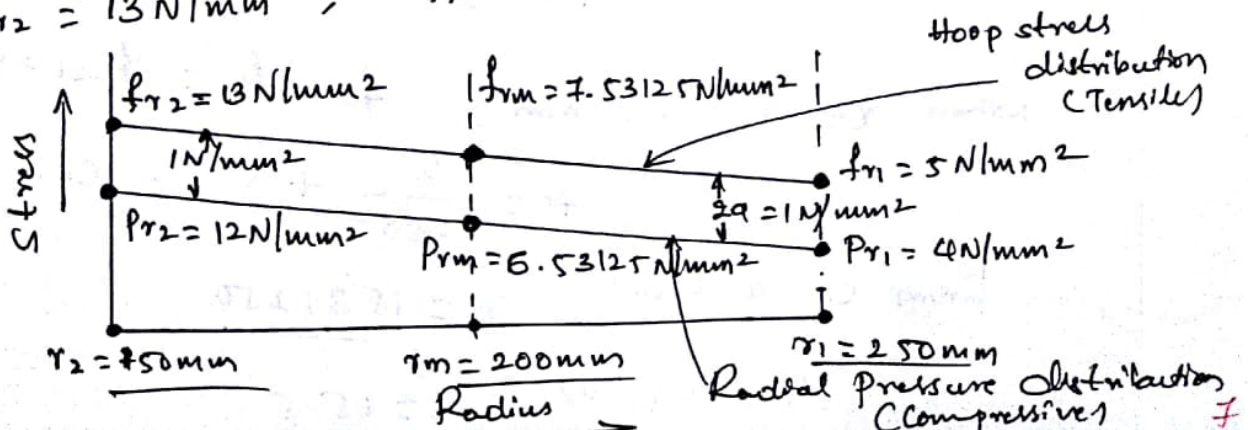 r2 = 13 N/mm
Hoop stress
distribution
(Tensile)
fr2 = 13 N/mm2
frm = 7.53125 N/mm2
Stress
1N/mm2
fr1 = 5 N/mm2
2a = 1 N/mm2
Pr2 = 12N/mm2
Prm = 6.53125 N/mm2
Pr1 = 4N/mm2
r2 = 150mm
rm = 200mm
r1 = 250mm
Radius
Radial Pressure distribution
(Compressive)
7